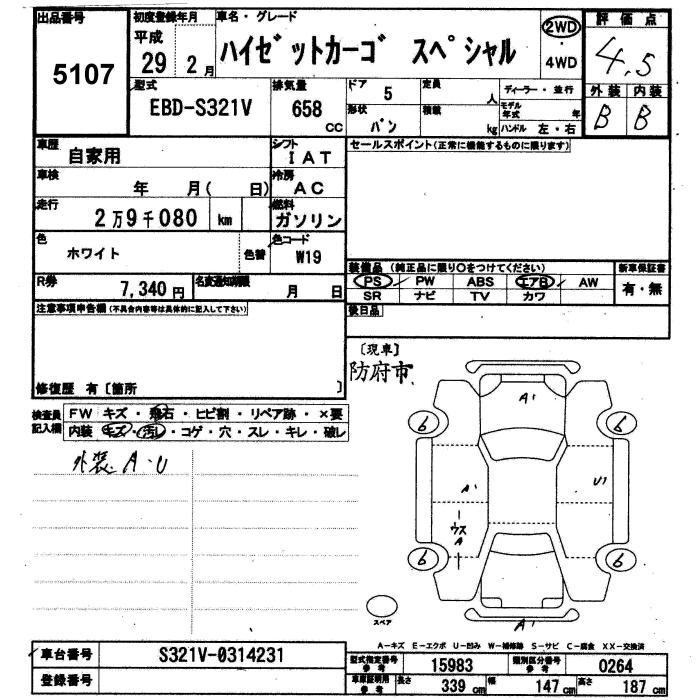 出品番号 初度登録年月 車名・グレード 評価点
5107 平成 29 2月 ハイゼットカーゴ スペシャル 2WD・4WD 4.5
型式 排気量 ドア 定員 ディーラー・並行 外装 内装
EBD-S321V 658 cc 5 人 モデル年式 年 B B
形状 バン 積載 kg ハンドル 左・右
車歴 自家用 シフト IAT セールスポイント(正常に機能するものに限ります)
車検 年 月( 日) 冷房 AC
走行 2万9千080 km 燃料 ガソリン
色 ホワイト 色替 色コード W19
装備品 (純正品に限り○をつけてください) 新車保証書
PS PW ABS エアB AW 有・無
SR ナビ TV カワ
R券 7,340円 名変通知期限 月 日
後日品
注意事項申告欄(不具合内容等は具体的に記入して下さい)
[現車]
防府市
修復歴 有[箇所 ]
検査員記入欄 FW キズ・飛石・ヒビ割・リペア跡・×要
内装 キズ・汚レ・コゲ・穴・スレ・キレ・破レ
外装 A・U
A1
6 6
A1 U1
ウス
A
6 6
スペア
A1
A-キズ E-エクボ U-凹み W-補修跡 S-サビ C-腐食 XX-交換済
車台番号 S321V-0314231
登録番号
型式指定番号 参考 15983 類別区分番号 参考 0264
車庫証明用 参考 長さ 339cm 幅 147cm 高さ 187cm